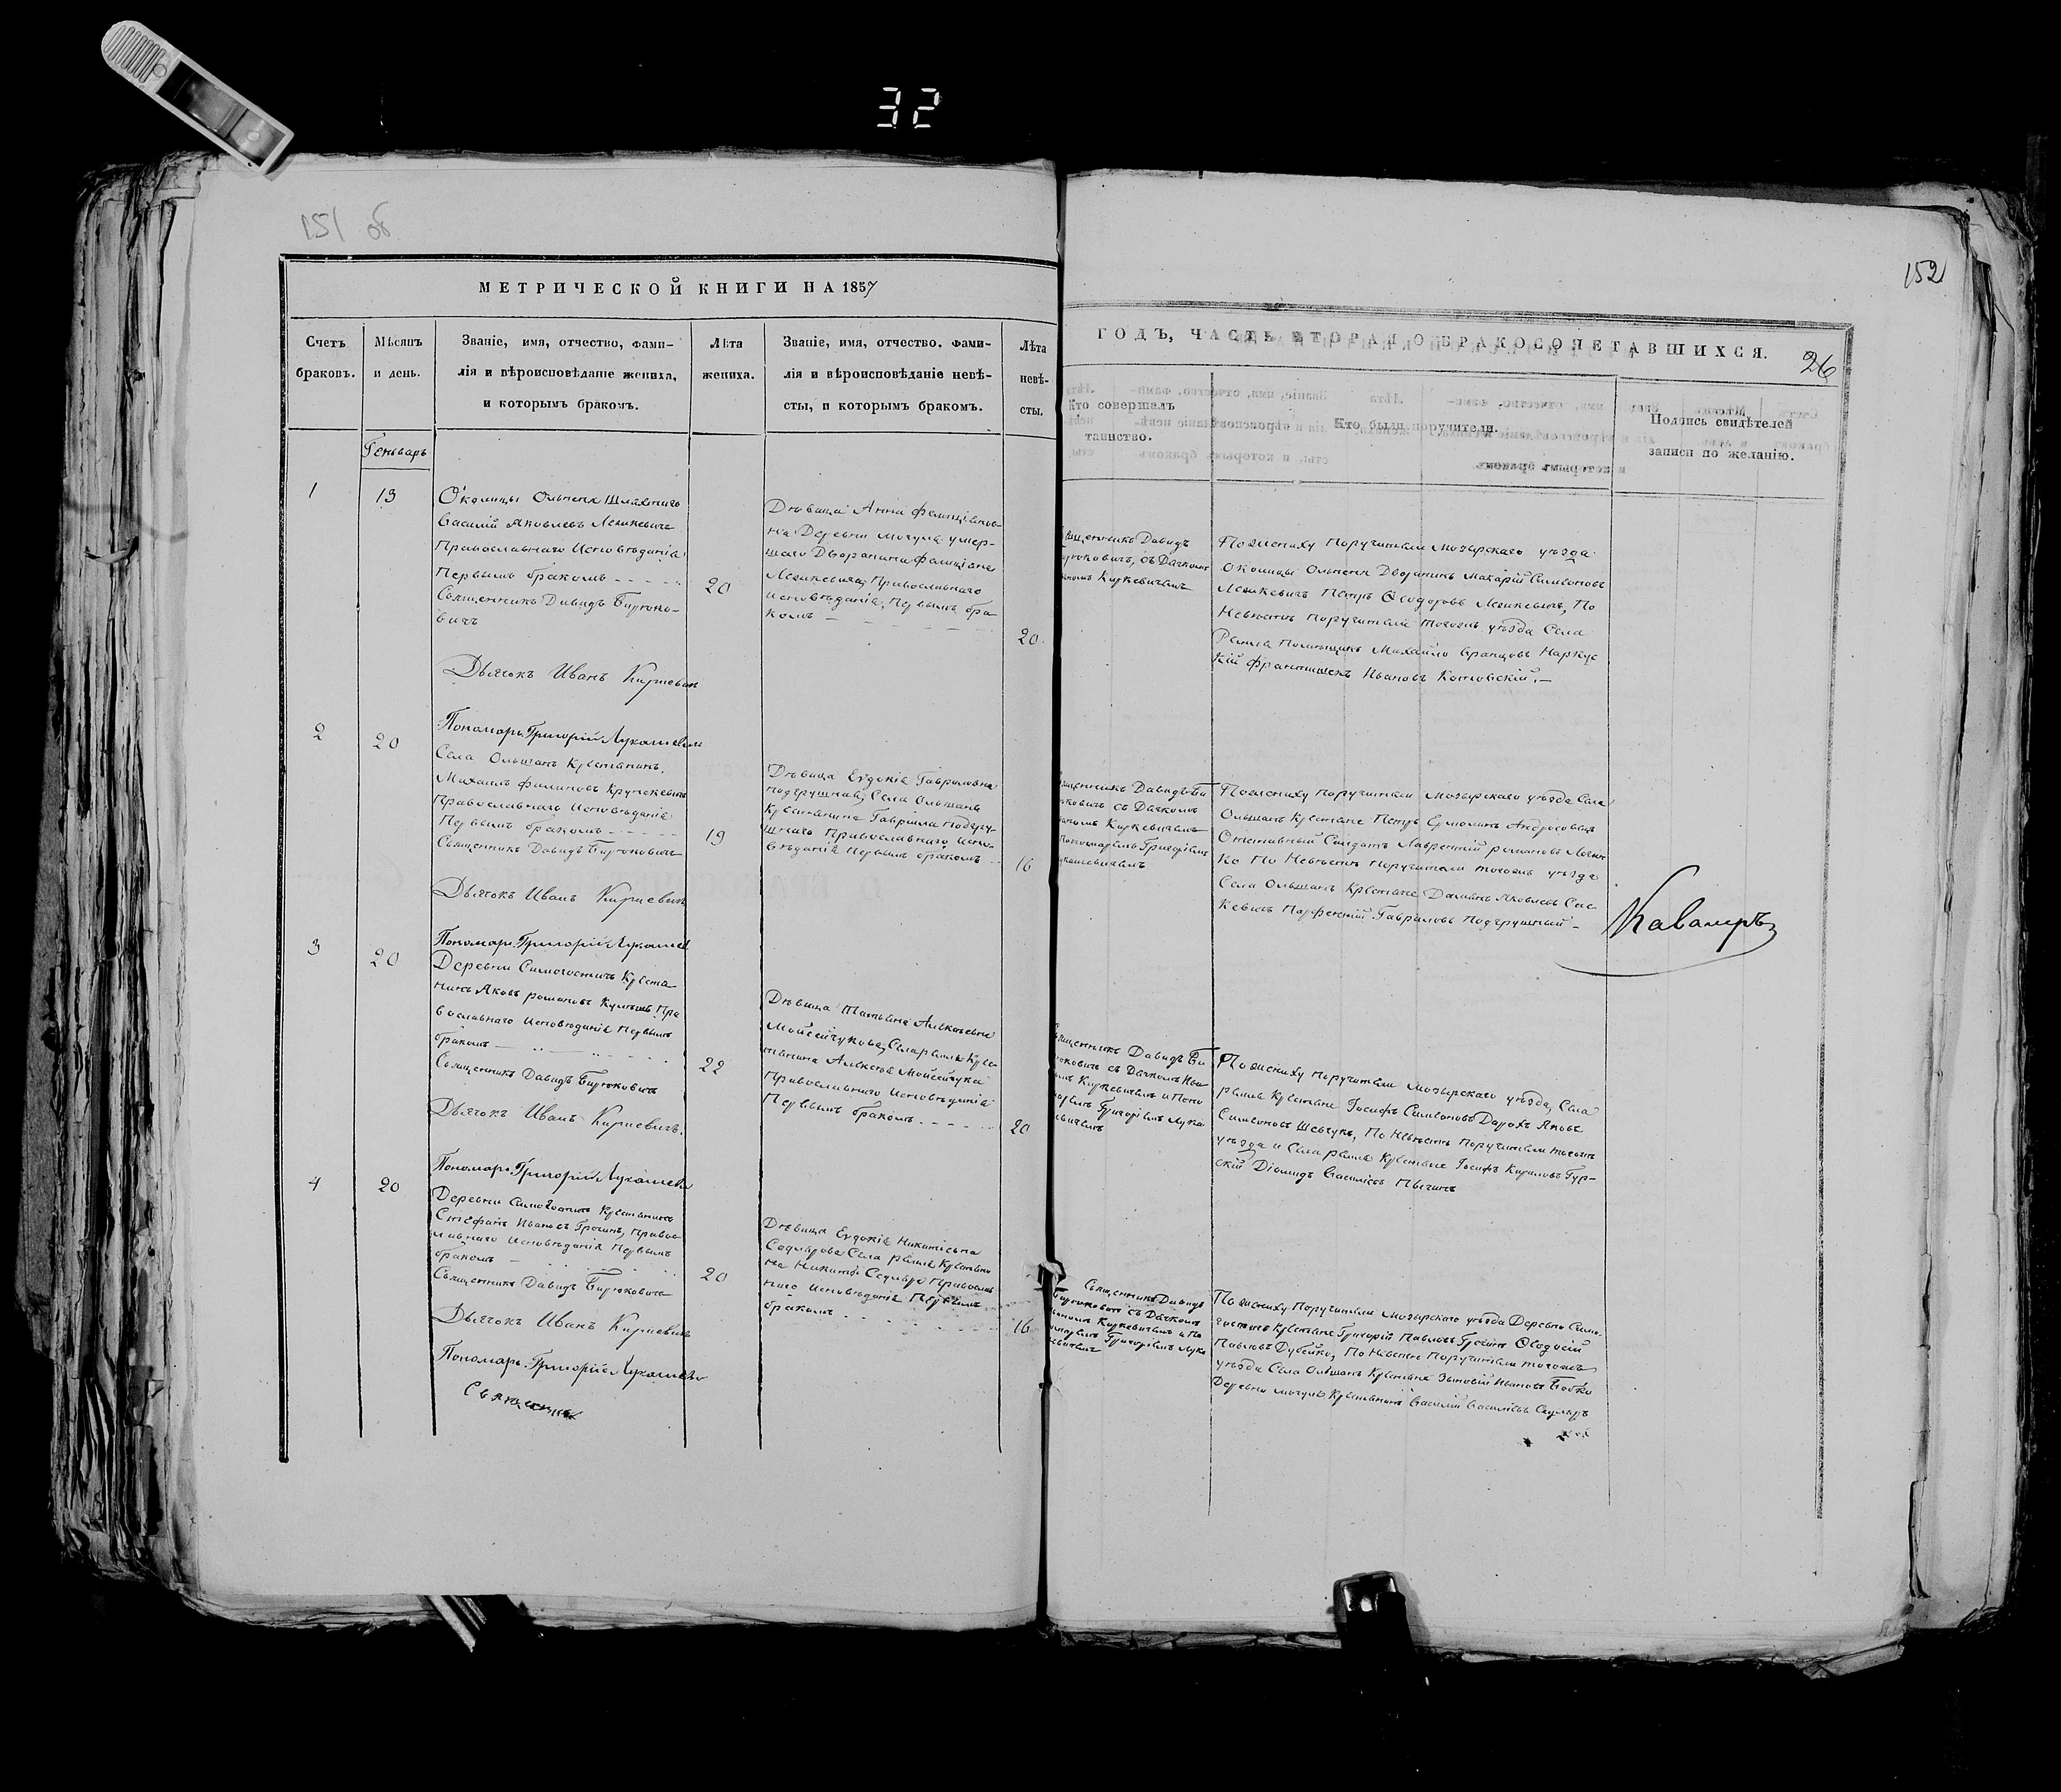 32
151 об
МЕТРИЧЕСКОЙ КНИГИ НА 1857
Счетъ браковъ.
Мѣсяцъ и день.
Званіе, имя, отчество, фами-
лія и вѣроисповѣданіе жениха,
и которымъ бракомъ.
Лѣта жениха.
Званіе, имя, отчество. фами-
лія и вѣроисповѣданіе невѣ-
сты, и которымъ бракомъ.
Лѣта невѣ-
сты.
Геньварь
1
13
Околицы Ольпеня Шляхтичь
Василій Яковлевъ Ленкевичъ
Православнаго Исповѣданія
Первымъ бракомъ
Священникъ Давидъ Бирюко-
вичъ
Дьячокъ Иванъ Киркевичъ
Пономарь Григорій Лукашевичъ
20
Дѣвица Анна Фелиціянов-
на Деревни Мочулъ умер-
шаго Дворянина Фелиціяна
Ленкевича, Православнаго
исповѣданія, Первымъ бра-
комъ
20
2
20
Села Ольшанъ Крестьянинъ
Михаилъ Филиповъ Крупскевичъ
Православнаго Исповѣданія
Первымъ бракомъ
Священникъ Давидъ Бирюковичъ
Дьячокъ Иванъ Киркевичъ
Пономарь Григорій Лукашев
19
Дѣвица Евдокія Гавриловна
Подгрушная, Села Ольшанъ
Крестьянина Гавріила Подгру-
шнаго Православнаго испо-
вѣданія Первымъ бракомъ
16
3
20
Деревни Самогостичь Крестья
нинъ Яковъ романовъ Пра
вославнаго Исповѣданія Первымъ
бракомъ
Священникъ Давидъ Бирюковичъ
Дьячокъ Иванъ Киркевичъ.
Пономарь Григорій Лукашевич
22
Дѣвица Татьяна Алексѣевна
Мойсейчукова, Села Кре-
тьянина Алексѣя Мойсейчука
Православнаго Исповѣданія
Первымъ бракомъ
20
4
20
Деревни Самогостичь Крестьянинъ
Стефанъ Ивановъ Правос
лавнаго Исповѣданія Первымъ
бракомъ
Священникъ Давидъ Бирюковичъ
Дьячокъ Иванъ Киркевичъ
Пономарь Григорій Лукашевич
Священникъ
20
Дѣвица Евдокія Никитična
Села Крестьяни
на Никиты Православ
наго Исповѣданія Первымъ
бракомъ
16
152
ГОДЪ, ЧАСТЬ ВТОРАЯ О БРАКОСОЧЕТАВШИХСЯ.
26
Кто совершалъ таинство.
Кто были поручители.
Подпись свидѣтелей записи по желанію.
ященникъ Давидъ
рюковичъ, съ Дьячкомъ
аномъ Киркевичемъ
По жениху Поручители Мозырскаго уѣзда
околицы Ольпеня Дворянинъ Макарій Симеоновъ
Ленкевичъ Петръ Ѳеодоровъ Ленкевичъ, По
Невѣстѣ поручители тогожъ уѣзда Села
Помѣщикъ Михайло
Францишекъ Ивановъ Котовскій.
ященникъ Давидъ Би
юковичъ съ Дьячкомъ
аномъ Киркевичемъ
Пономаремъ Григоріемъ
укашевичемъ
По жениху поручители Мозырскаго уѣзда Села
Ольшанъ Крестьяне Петръ
Отставный Солдатъ Лаврентій романовъ
По Невѣстѣ Поручители тогожъ уѣзда
Села Ольшанъ Крестьяне Яковлевъ
Парфеній Гавриловъ Подгрушный
Кавалеръ
ященникъ Давидъ Би
юковичъ съ Дьячкомъ Ива
омъ Киркевичемъ и Поно
маремъ Григоріемъ Лука
евичемъ
По жениху поручители Мозырскаго уѣзда, Села
Крестьяне Іосифъ Симеоновъ Яковъ
Симеоновъ Шевчукъ, По Невѣстѣ Поручители тогожъ
уѣзда и Села Крестьяне Іосифъ Кириловъ Гур-
скій Діомидъ Василіевъ
Священникъ Давидъ
Бирюковичъ съ Дьячкомъ
аномъ Киркевичемъ и По
номаремъ Григоріемъ Лука
шевичемъ
По жениху Поручители Мозырскаго уѣзда Деревни Само-
гостичь Крестьяне Григорій Павловъ Ѳеодосій
Павловъ Дубейко, По Невѣстѣ Поручители тогожъ
уѣзда Села Ольшанъ Крестьяне Зиновій Ивановъ Бобко
Деревни Мочулъ Крестьянинъ Василій Василіевъ